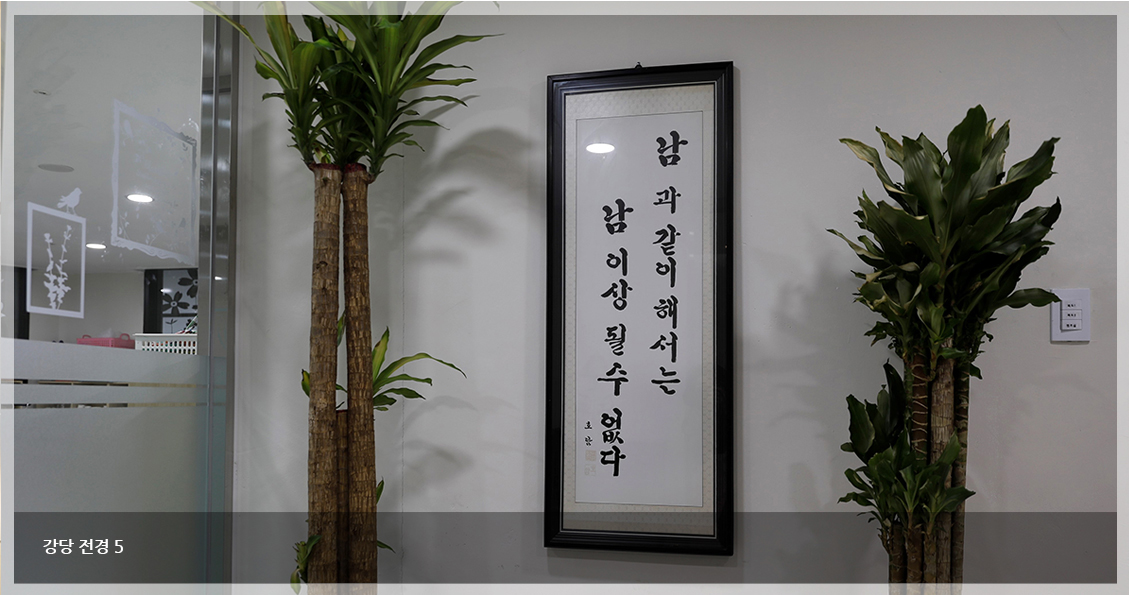 남과 같이 해서는
남 이상 될 수 없다
강당 전경 5